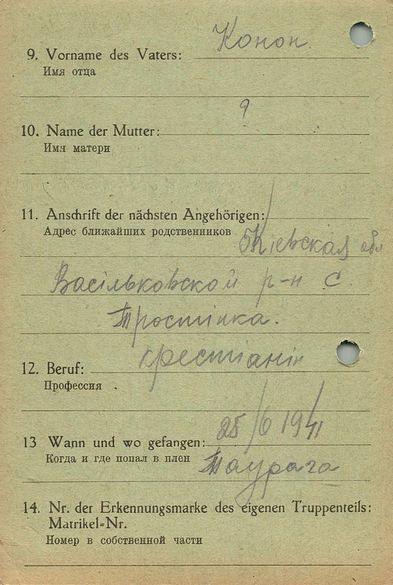 Конон
9. Vorname des Vaters:
Имя отца
9
10. Name der Mutter:
Имя матери
11. Anschrift der nächsten Angehörigen:
Адрес ближайших родственников
Кіевская обл
Васільковской р-н С
Тростінка.
крестіанін
12. Beruf:
Профессия
25/6 1941
13 Wann und wo gefangen:
Когда и где попал в плен
Таурага
14. Nr. der Erkennungsmarke des eigenen Truppenteils:
Matrikel-Nr.
Номер в собственной части